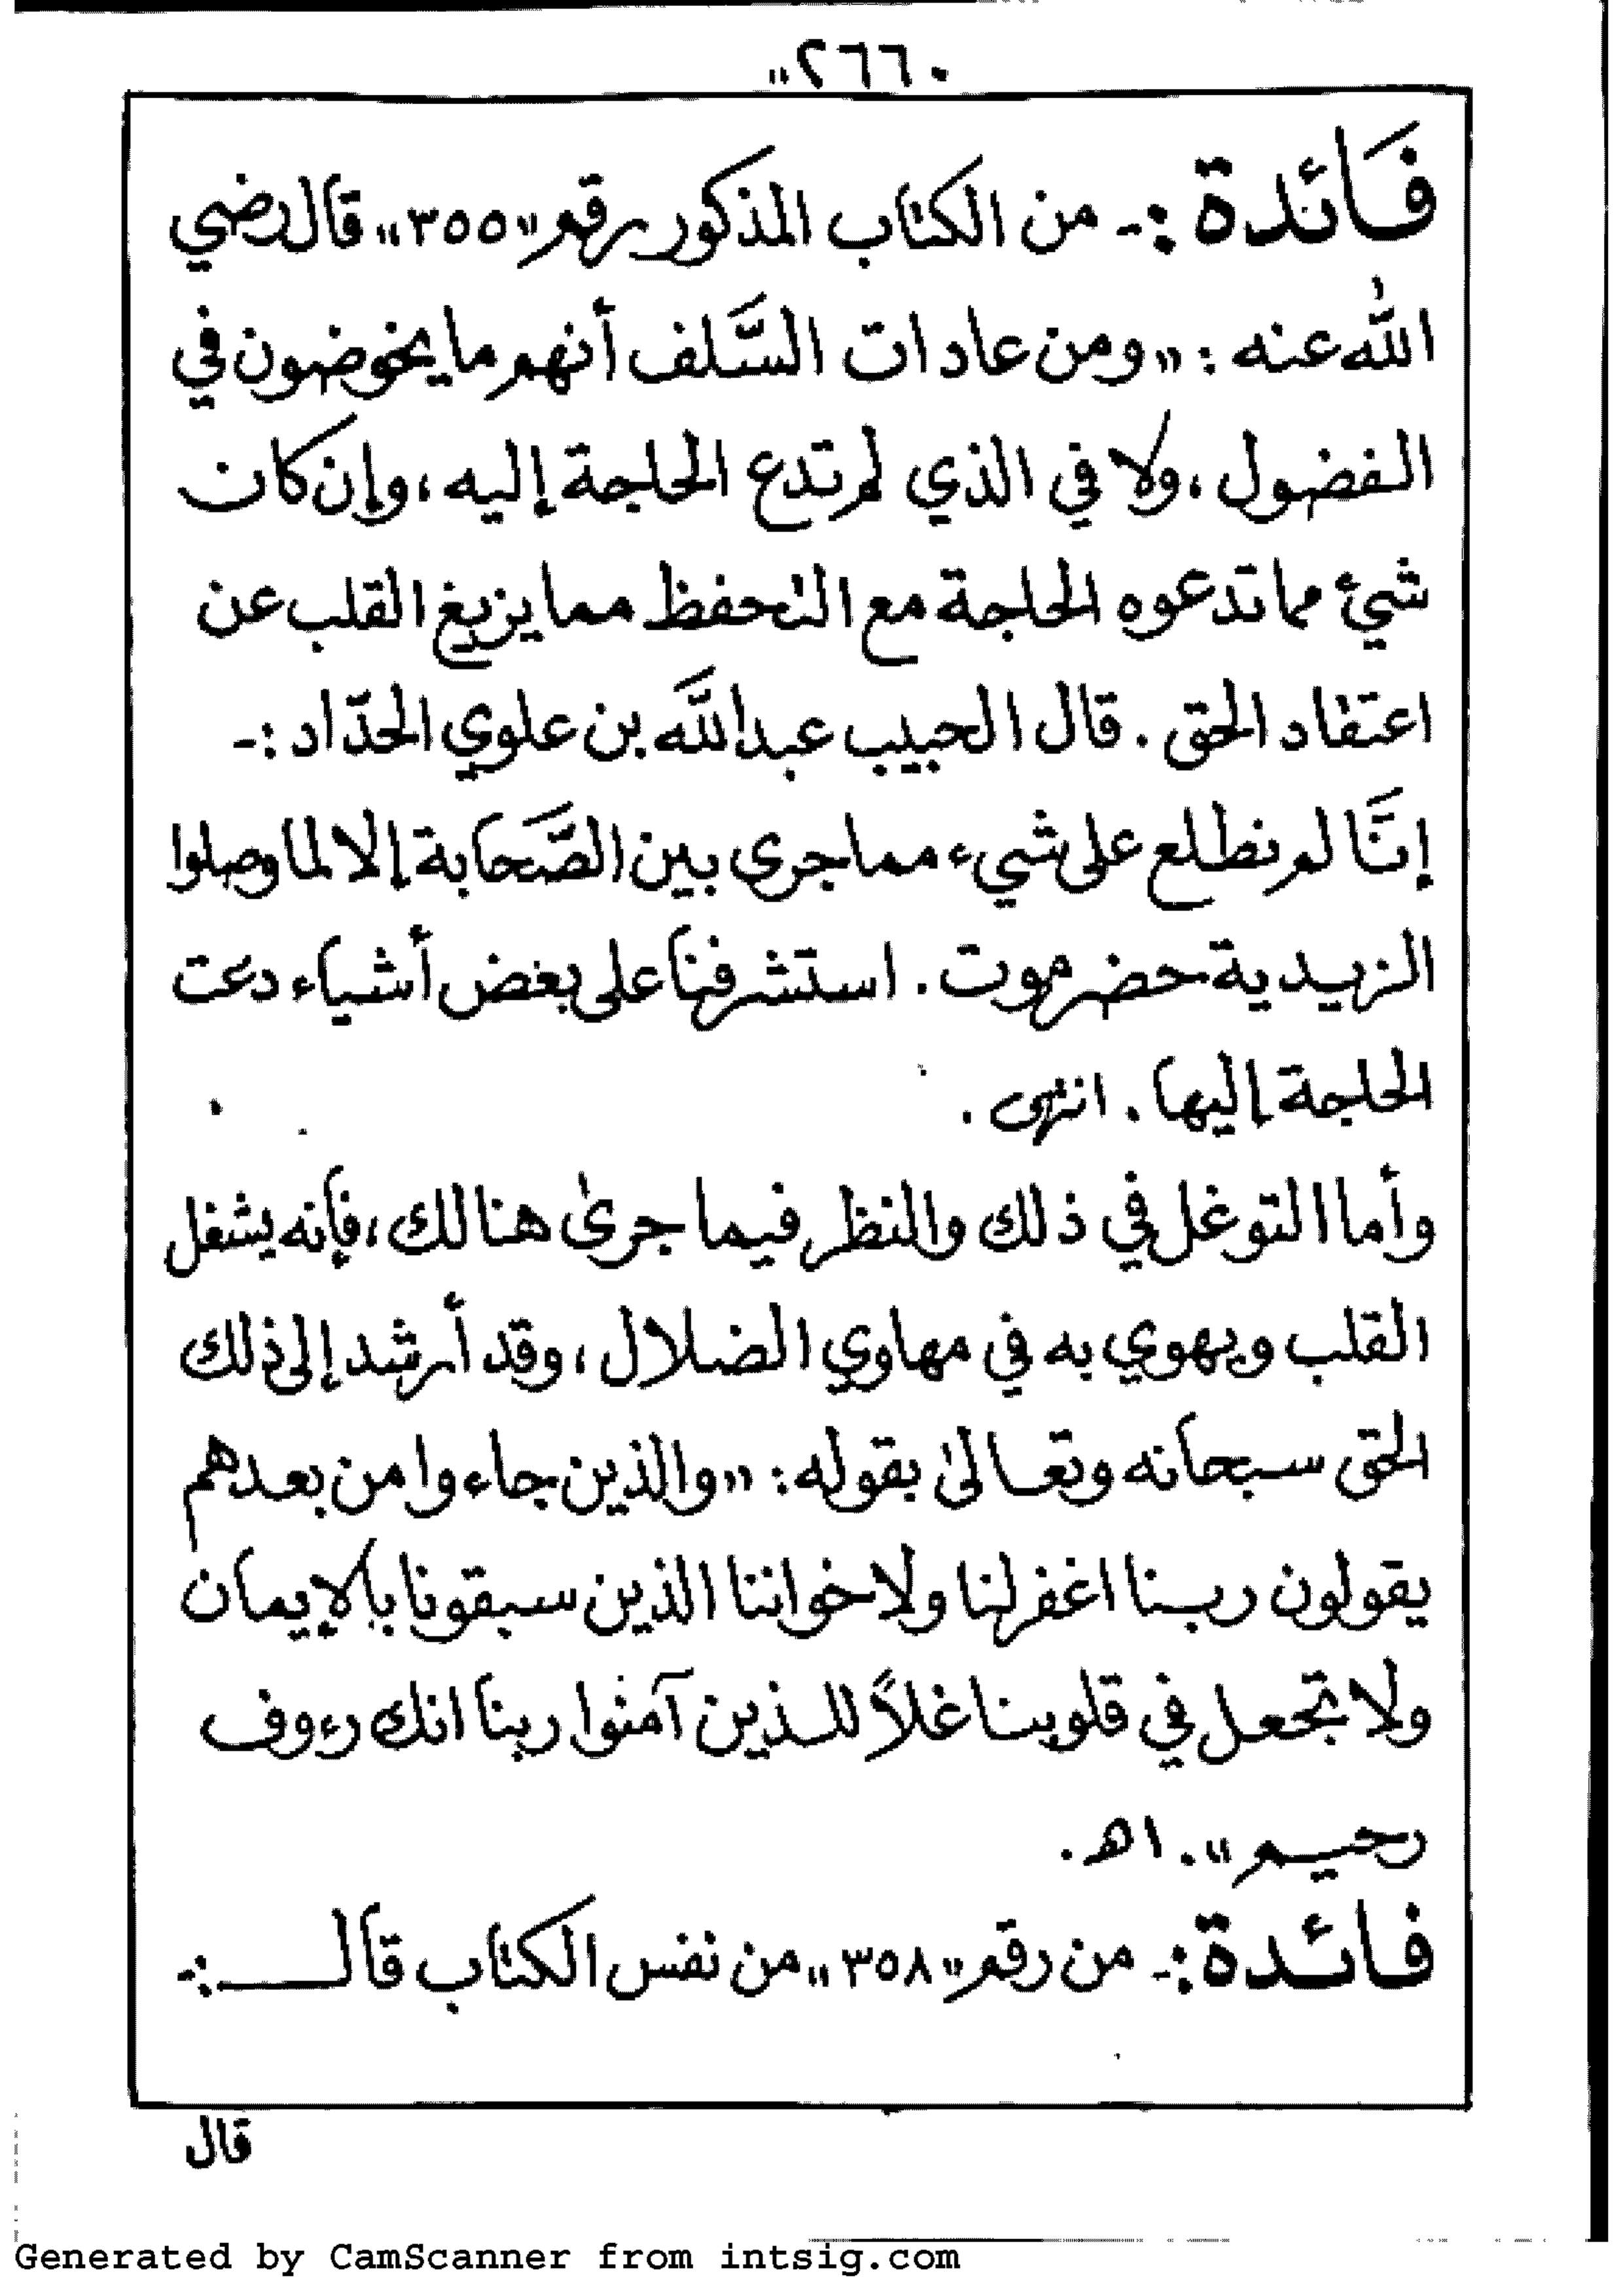 "٢٦٦٠
فَائدة :- من الكتاب المذكور رقم "٣٥٥" قال رضي
الله عنه : "ومن عادات السَّلف أنهم ما يخوضون في
الفضول ، ولا في الذي لم تدع الحاجة إليه ، وإن كان
شيئ مما تدعوه الحاجة مع التحفظ مما يزيغ القلب عن
اعتقاد الحق . قال الحبيب عبدالله بن علوي الحدّاد :-
إنَّا لم نطلع على شيء مما جرى بين الصَّحابة إلا لما وصلوا
الزيدية حضرموت . استشرفنا على بعض أشياء دعت
الحاجة إليها . انتهى .
وأما التوغل في ذلك والنظر فيما جرىٰ هنالك ، فإنه يشغل
القلب ويهوي به في مهاوي الضلال ، وقد أرشد إلى ذلك
الحق سبحانه وتعالىٰ بقوله : "والذين جاءوا من بعدهم
يقولون ربنا اغفر لنا ولاخواننا الذين سبقونا بالإيمان
ولا تجعل في قلوبنا غلاً للذين آمنوا ربنا انك رءوف
رحيم" . اهـ .
فائدة :- من رقم "٣٥٨" من نفس الكتاب قال :-
قال
Generated by CamScanner from intsig.com